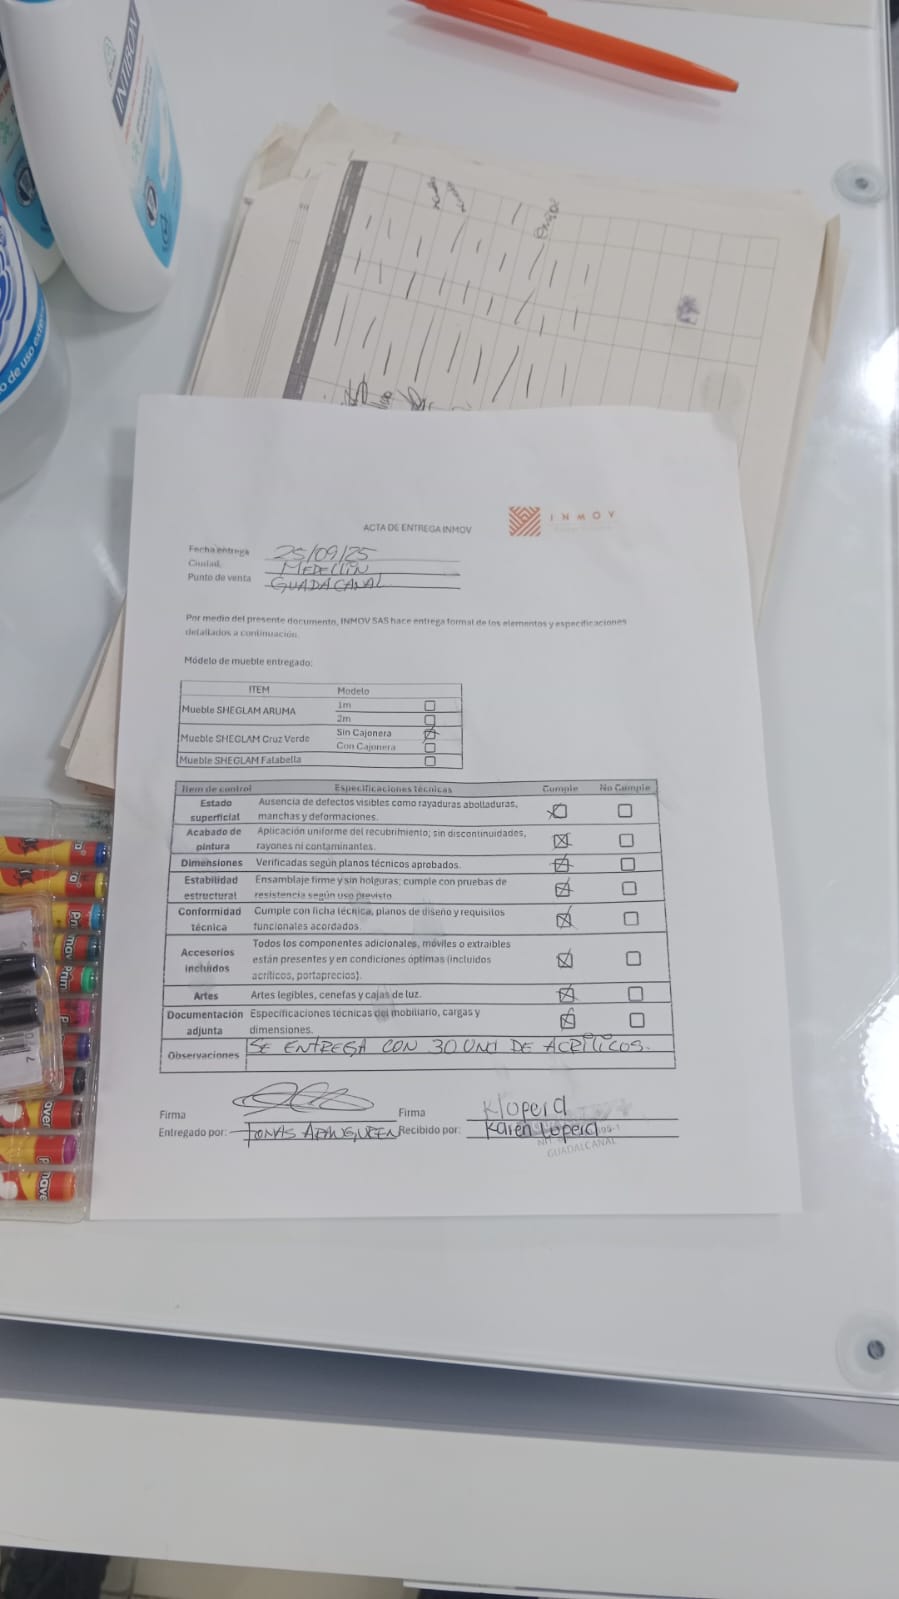 INTIBON
de uso exter
ACTA DE ENTREGA INMOV
INMOV
Fecha entrega 25/09/25
Ciudad, MEDELLIN
Punto de venta GUADACANAL
Por medio del presente documento, INMOV SAS hace entrega formal de los elementos y especificaciones
detallados a continuación.
Módelo de mueble entregado:
ITEM Modelo
Mueble SHEGLAM ARUMA 1m
2m
Mueble SHEGLAM Cruz Verde Sin Cajonera
Con Cajonera
Mueble SHEGLAM Falabella
Item de control Especificaciones técnicas Cumple No Cumple
Estado superficial Ausencia de defectos visibles como rayaduras abolladuras,
manchas y deformaciones.
Acabado de pintura Aplicación uniforme del recubrimiento; sin discontinuidades,
rayones ni contaminantes.
Dimensiones Verificadas según planos técnicos aprobados.
Estabilidad estructural Ensamblaje firme y sin holguras; cumple con pruebas de
resistencia según uso previsto
Conformidad técnica Cumple con ficha técnica, planos de diseño y requisitos
funcionales acordados.
Accesorios incluidos Todos los componentes adicionales, móviles o extraibles
están presentes y en condiciones óptimas (incluidos
acrílicos, portaprecios).
Artes Artes legibles, cenefas y cajas de luz.
Documentación adjunta Especificaciones técnicas del mobiliario, cargas y
dimensiones.
Observaciones SE ENTREGA CON 30 UNI DE ACRILICOS.
Firma Firma Klopera
Entregado por: Recibido por: Karen Lopera
GUADALCANAL